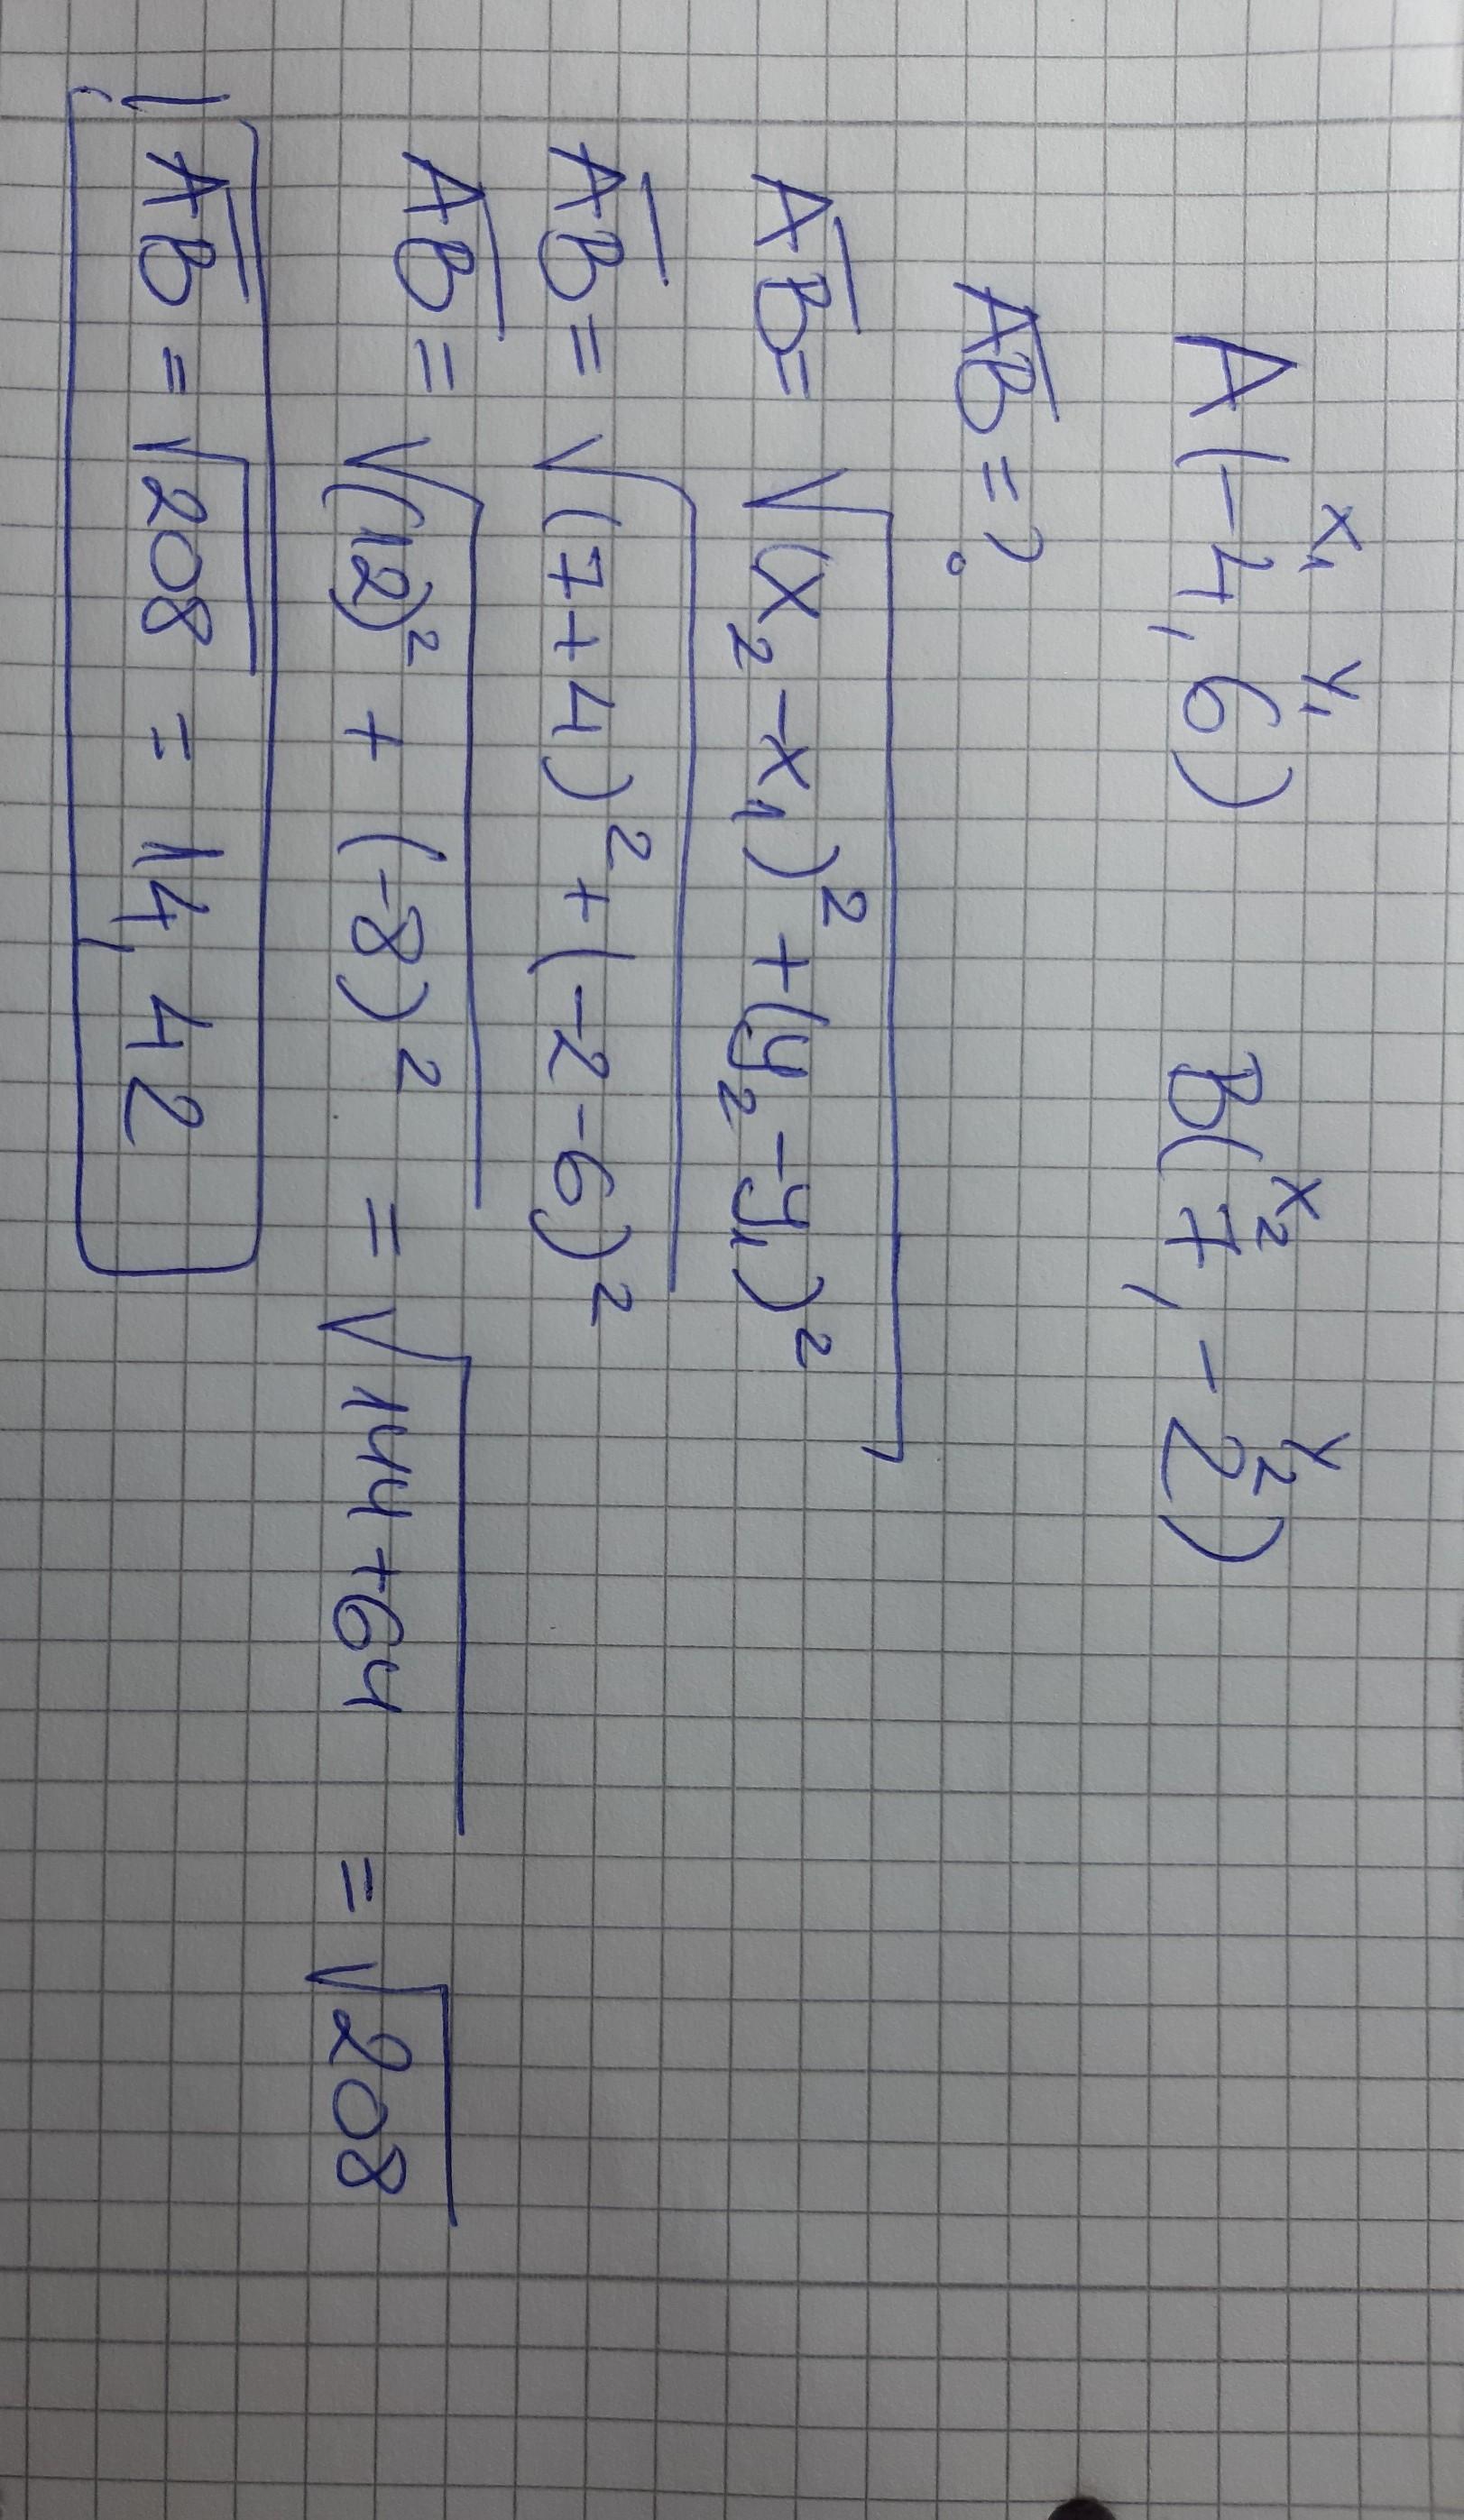 A(-4, 6) B(7, -2)
x₁ y₁ x₂ y₂
A̅B̅ = ?
A̅B̅ = √((x₂-x₁)² + (y₂-y₁)²)
A̅B̅ = √((7+4)² + (-2-6)²)
A̅B̅ = √((12)² + (-8)²) = √(144+64) = √208
A̅B̅ = √208 = 14,42